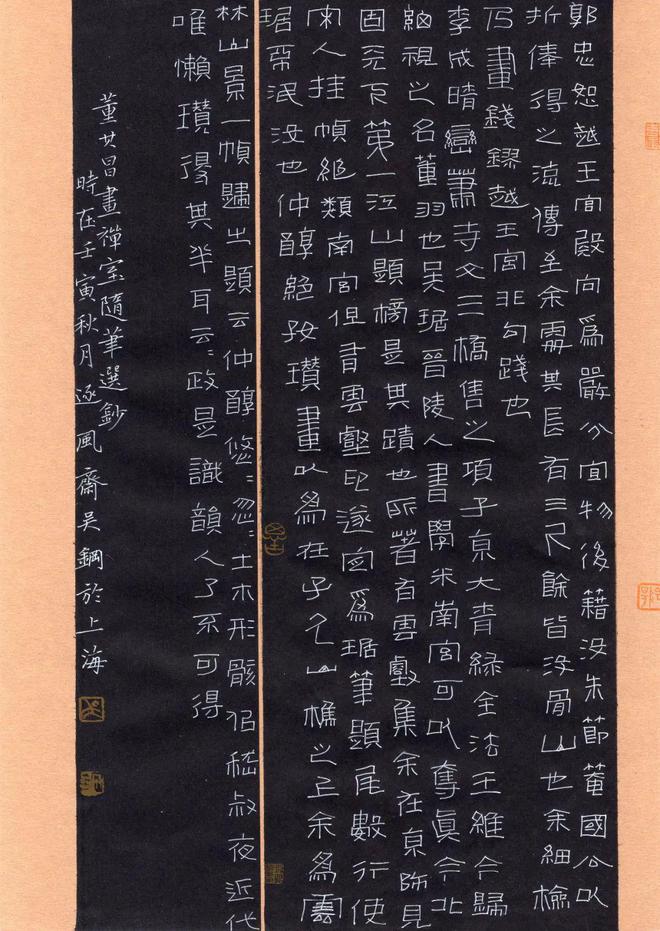 郭忠恕越王宮殿向為嚴分宜物後籍沒朱節菴國公以
折俸得之流傳至余處其長有三尺餘皆沒骨山也余細檢
乃畫錢鏐越王宮非勾踐也
李成晴巒蕭寺文三橋售之項子京大青綠全法王維今歸
余細視之名董羽也吳琚晉陵人書學米南宮可以奪真今北
固天下第一江山題榜是其蹟也所著有雲壑集余在京師見
宋人挂幀絕類南宮但有雲壑印遂定為琚筆題尾數行使
琚不泯沒也仲醇絕好瓚畫以為在子久山樵之上余為雲
林山景一幀歸之題云仲醇悠悠忽忽土木形骸似嵇叔夜近代
唯懶瓚得其半耳云云政是識韻人了不可得
董其昌畫禪室隨筆選鈔
時在壬寅秋月逐風齋吳鋼於上海